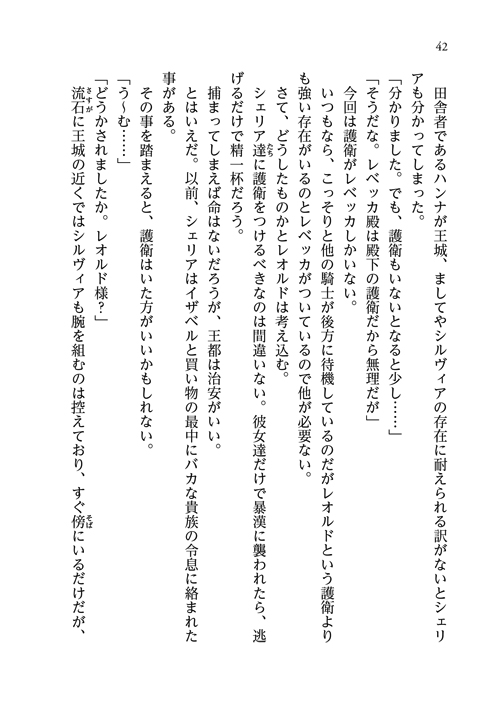 42
田舎者であるハンナが王城、ましてやシルヴィアの存在に耐えられる訳がないとシェリ
アも分かってしまった。
「分かりました。でも、護衛もいないとなると少し……」
「そうだな。レベッカ殿は殿下の護衛だから無理だが」
今回は護衛がレベッカしかいない。
いつもなら、こっそりと他の騎士が後方に待機しているのだがレオルドという護衛より
も強い存在がいるのとレベッカがついているので他が必要ない。
さて、どうしたものかとレオルドは考え込む。
シェリア達たちに護衛をつけるべきなのは間違いない。彼女達だけで暴漢に襲われたら、逃
げるだけで精一杯だろう。
捕まってしまえば命はないだろうが、王都は治安がいい。
とはいえだ。以前、シェリアはイザベルと買い物の最中にバカな貴族の令息に絡まれた
事がある。
その事を踏まえると、護衛はいた方がいいかもしれない。
「う～む……」
「どうかされましたか。レオルド様？」
流石さすがに王城の近くではシルヴィアも腕を組むのは控えており、すぐ傍そばにいるだけだが、